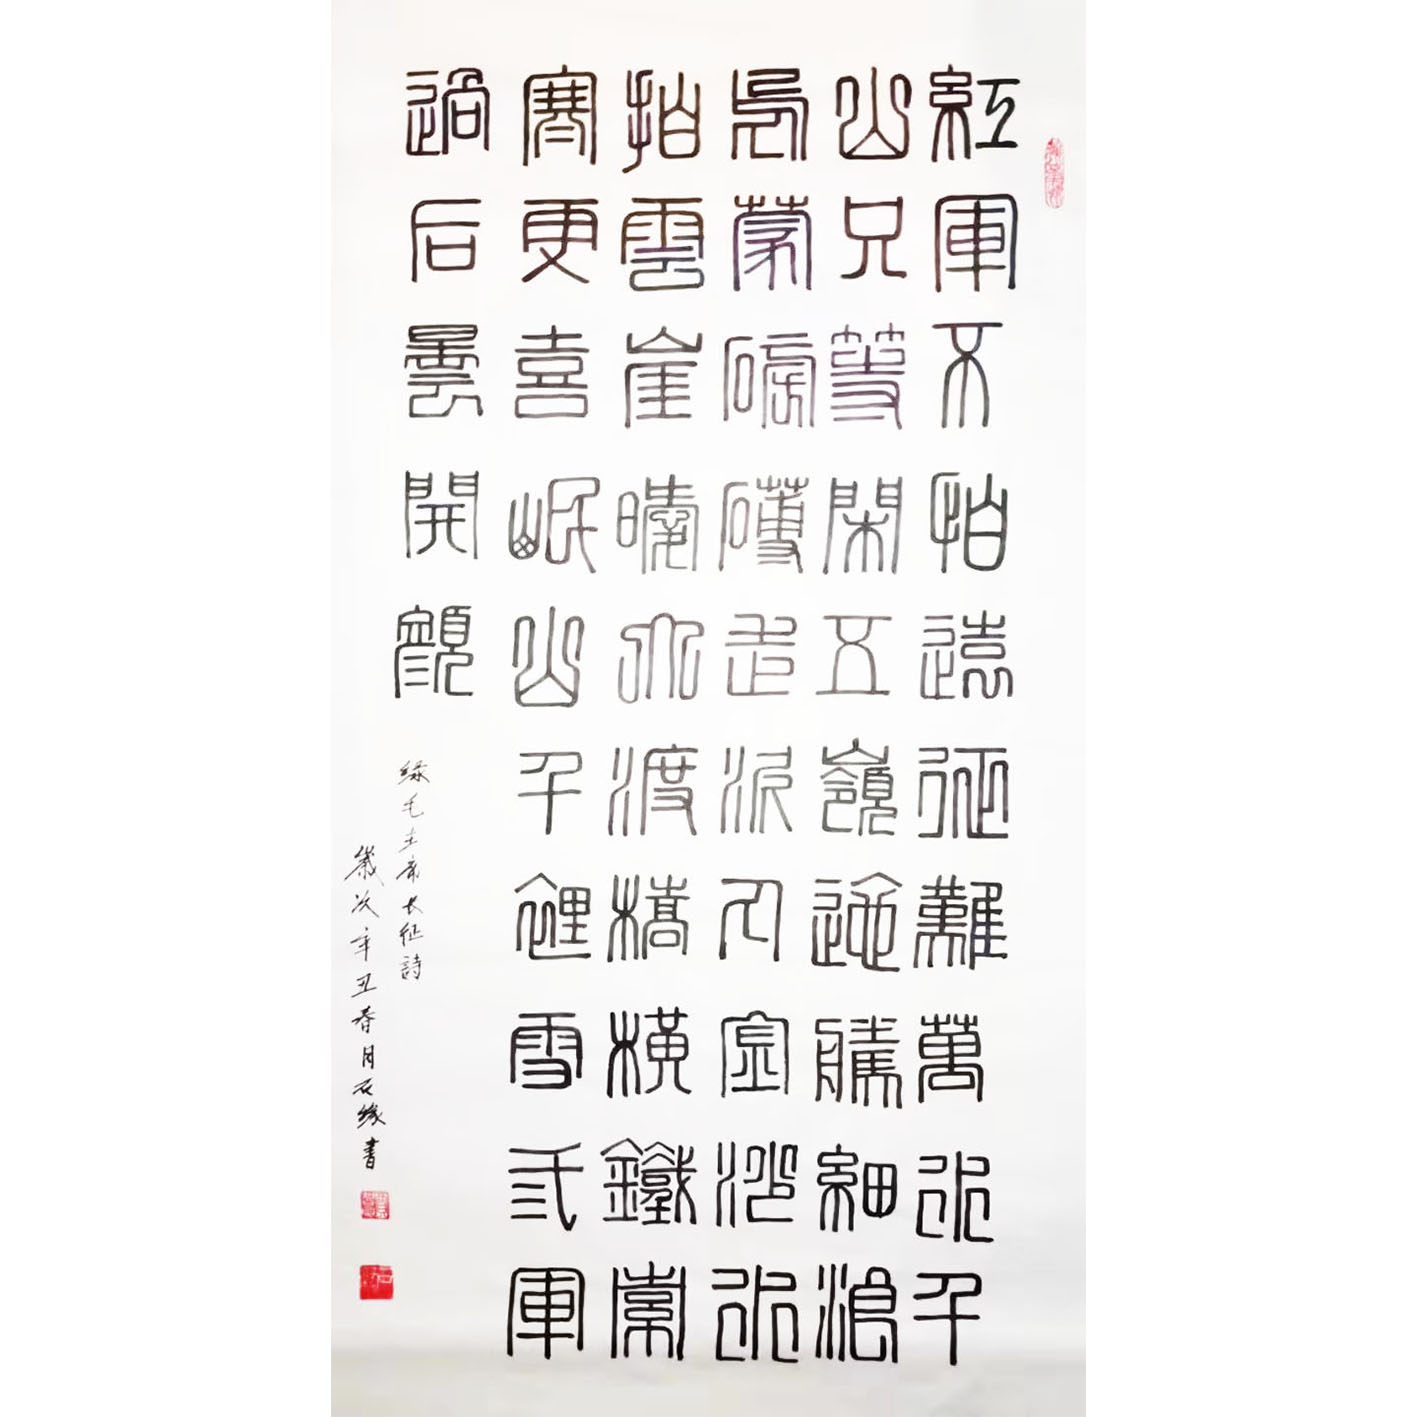 紅軍不怕遠征難萬水千
山只等閑五嶺迤騰細浪
烏蒙磅礡走泥丸金沙水
拍雲崖暖大渡橋橫鐵索
寒更喜岷山千裡雪弎軍
過后盡開顏
録毛主席长征詩
歲次辛丑春月石緣書